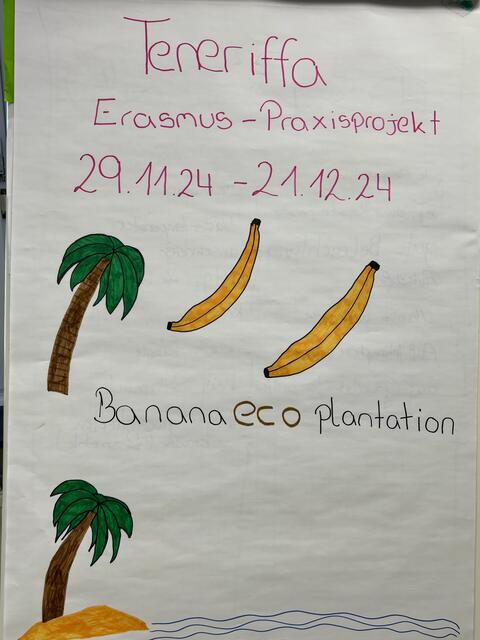 Teneriffa
Erasmus - Praxisprojekt
29.11.24 - 21.12.24
Banana eco plantation